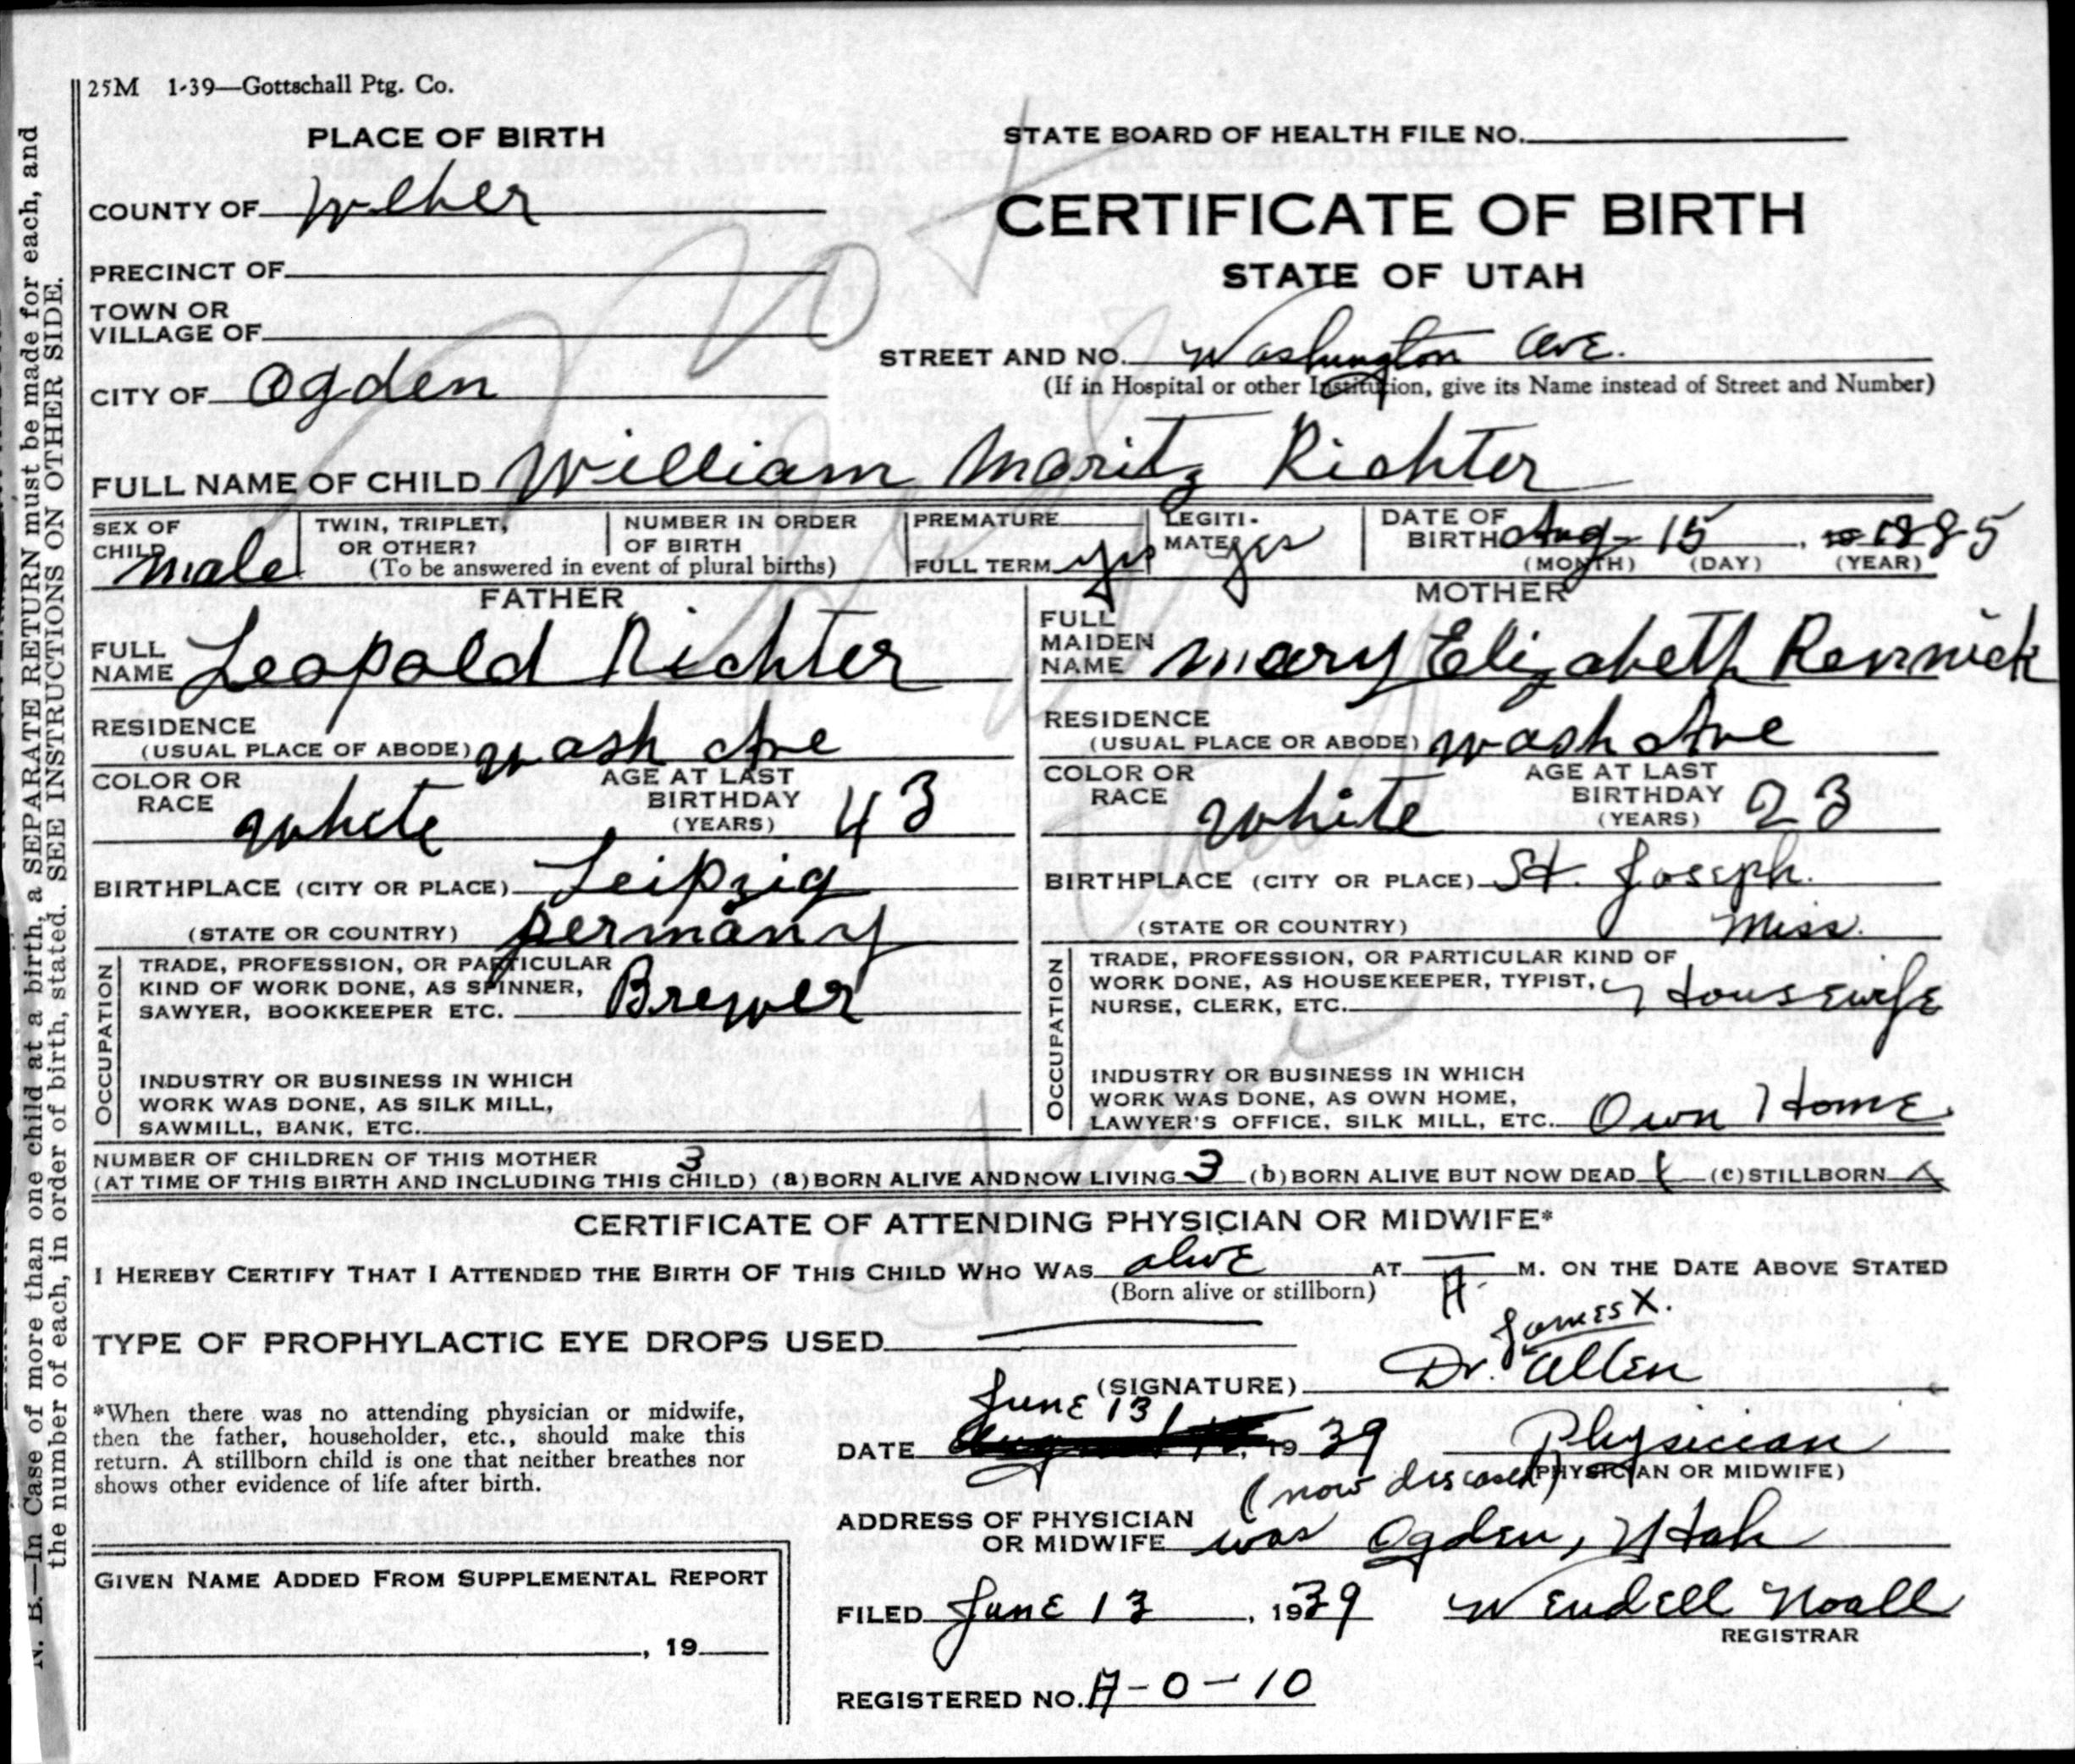 25M 1-39—Gottschall Ptg. Co.
PLACE OF BIRTH
STATE BOARD OF HEALTH FILE NO.
COUNTY OF Weber
CERTIFICATE OF BIRTH
PRECINCT OF
STATE OF UTAH
TOWN OR
VILLAGE OF
STREET AND NO. Washington Ave.
(If in Hospital or other Institution, give its Name instead of Street and Number)
CITY OF Ogden
FULL NAME OF CHILD William Moritz Richter
SEX OF CHILD male
TWIN, TRIPLET, OR OTHER?
NUMBER IN ORDER OF BIRTH
(To be answered in event of plural births)
PREMATURE
FULL TERM yes
LEGITI-MATE? yes
DATE OF BIRTH Aug- 15, 1885
(MONTH) (DAY) (YEAR)
FATHER
FULL NAME Leopold Richter
RESIDENCE
(USUAL PLACE OF ABODE) Wash Ave
COLOR OR RACE White
AGE AT LAST BIRTHDAY (YEARS) 43
BIRTHPLACE (CITY OR PLACE) Leipzig
(STATE OR COUNTRY) Germany
OCCUPATION
TRADE, PROFESSION, OR PARTICULAR
KIND OF WORK DONE, AS SPINNER,
SAWYER, BOOKKEEPER ETC. Brewer
INDUSTRY OR BUSINESS IN WHICH
WORK WAS DONE, AS SILK MILL,
SAWMILL, BANK, ETC.
MOTHER
FULL MAIDEN NAME Mary Elizabeth Renwick
RESIDENCE
(USUAL PLACE OR ABODE) Wash Ave
COLOR OR RACE White
AGE AT LAST BIRTHDAY (YEARS) 23
BIRTHPLACE (CITY OR PLACE) St. Joseph.
(STATE OR COUNTRY) Miss.
OCCUPATION
TRADE, PROFESSION, OR PARTICULAR KIND OF
WORK DONE, AS HOUSEKEEPER, TYPIST,
NURSE, CLERK, ETC. Housewife
INDUSTRY OR BUSINESS IN WHICH
WORK WAS DONE, AS OWN HOME,
LAWYER'S OFFICE, SILK MILL, ETC. Own Home
NUMBER OF CHILDREN OF THIS MOTHER 3
(AT TIME OF THIS BIRTH AND INCLUDING THIS CHILD) (a) BORN ALIVE AND NOW LIVING 3 (b) BORN ALIVE BUT NOW DEAD (c) STILLBORN
CERTIFICATE OF ATTENDING PHYSICIAN OR MIDWIFE*
I HEREBY CERTIFY THAT I ATTENDED THE BIRTH OF THIS CHILD WHO WAS alive AT A. M. ON THE DATE ABOVE STATED
(Born alive or stillborn)
TYPE OF PROPHYLACTIC EYE DROPS USED
James X.
(SIGNATURE) Dr. Allen
*When there was no attending physician or midwife,
then the father, householder, etc., should make this
return. A stillborn child is one that neither breathes nor
shows other evidence of life after birth.
June 13/
DATE , 1939 Physician
(PHYSICIAN OR MIDWIFE)
(now diseased)
ADDRESS OF PHYSICIAN
OR MIDWIFE was Ogden, Utah
GIVEN NAME ADDED FROM SUPPLEMENTAL REPORT
, 19
FILED June 13, 1939 Wendell Noall
REGISTRAR
REGISTERED NO. A-0-10
N. B.—In Case of more than one child at a birth, a SEPARATE RETURN must be made for each, and
the number of each, in order of birth, stated. SEE INSTRUCTIONS ON OTHER SIDE.